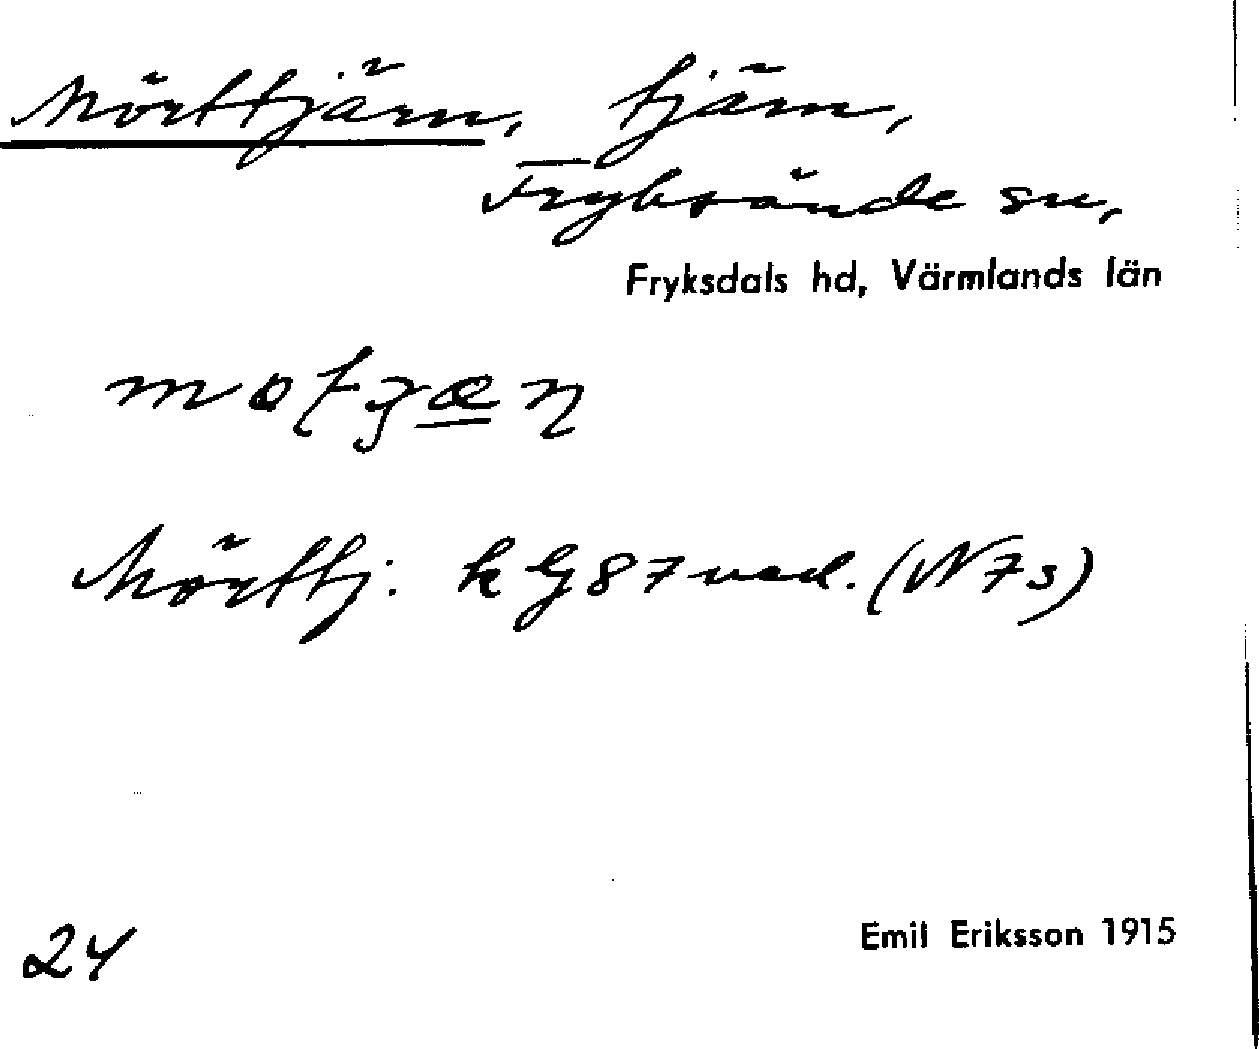 Mörttjärn, tjärn,
Fryksände sn,
Fryksdals hd, Värmlands län
Mörttj. k G87 vad. (N73)
24
Emil Eriksson 1915